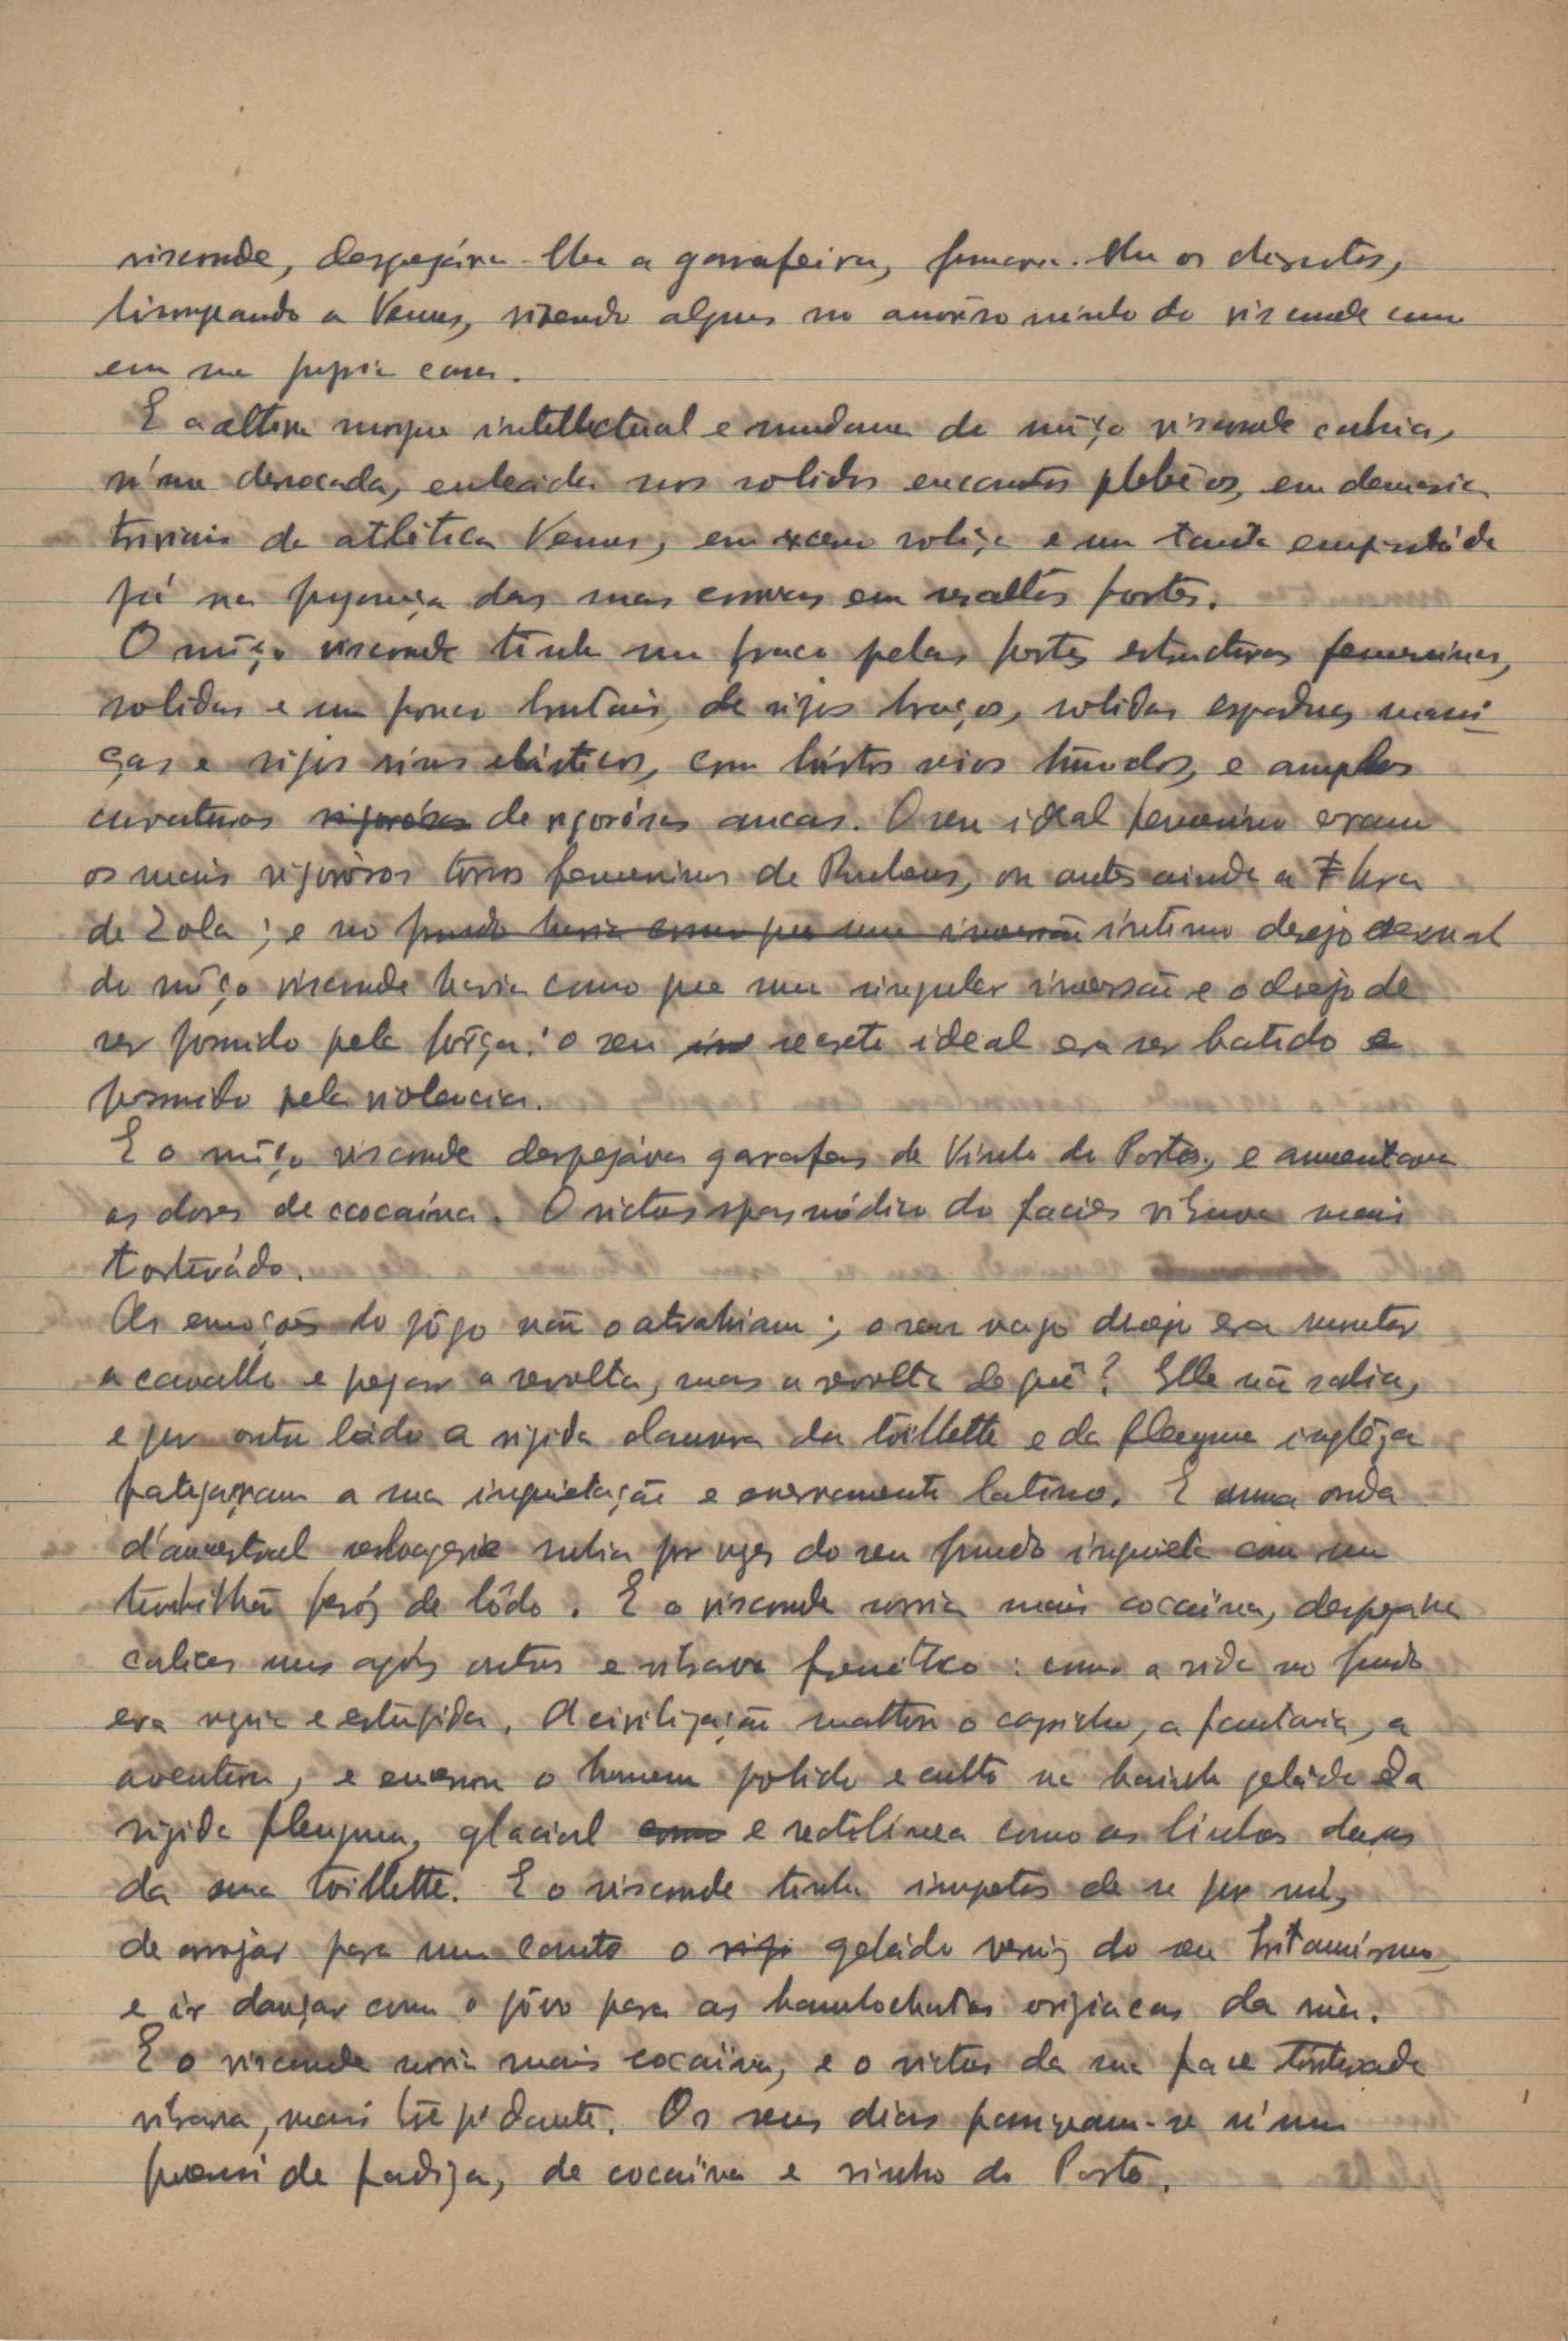 visconde, despejára-lhe a garrafeira, fumara-lhe os charutos,
lisongeando a Venus, vivendo alguns no amorôso ninho do visconde como
em sua propria casa.
E a altiva morgue intellectual e mundana do môço visconde cahia,
n'uma derrocada, enleiada nos solidos encantos plebêos, em demasia
triviais da atlética Venus, em excesso roliça e um tanto
já na pujança das suas curvas em resaltos fortes.
O môço visconde tinha um fraco pelas fortes estructuras femeninas,
solidas e um pouco brutais, de rijos braços, solidas espaduas massi-
ças e rijos seios elásticos, com bústos nios túmidos, e amplas
curvaturas vigorósas de vigorósas ancas. O seu ideal femenino eram
os mais vigorósos torsos femeninos de Rubens, ou antes ainda a
de Zola; e no fundo havia como que uma inversão intimo desejo sexual
do môço visconde havia como que uma singular inversão e o desejo de
ser possuido pela fôrça: o seu secreto ideal era ser batido e
possuido pela violencia.
E o môço visconde despejáva garrafas de Vinho do Porto, e aumentava
as doses de cocaína. O rictus spasmódico do facies vibrava mais
torturádo.
As emoções do jôgo não o atrahiam; o seu vago desejo era montar
a cavallo e pegar a revolta, mas a revolta de quê? Elle não sabia,
e por outro lado a rigida clausura da toillette e da fleugma inglêza
fatigavam a sua inquietação e enervamento latino. E uma onda
d'ancestral selvageria subia por vezes do seu fundo inquieto com um
turbilhão feróz de lôdo. E o visconde sorvia mais cocaína, despejava
calices uns após outros e vibrava frenético: como a vida no fundo
era vazia e estúpida. A civilização mattou o capricho, a fantasia, a
aventura, e encerrou o homem polido e culto na bainha gelada da
rigida fleugma, glacial como e rectilínea como as linhas duras
da sua toillette. E o visconde tinha impetos de se pôr nú,
de arrojar para um canto o rijo geládo verniz do seu britanismo,
e ir dançar com o pôvo para as bambochatas orgiacas da rua.
E o visconde sorvia mais cocaína, e o rictus da sua face torturada
vibrava, mais trepidante. Os seus dias passavam-se n'um
frenesi de fadiga, de cocaína e vinho do Porto.